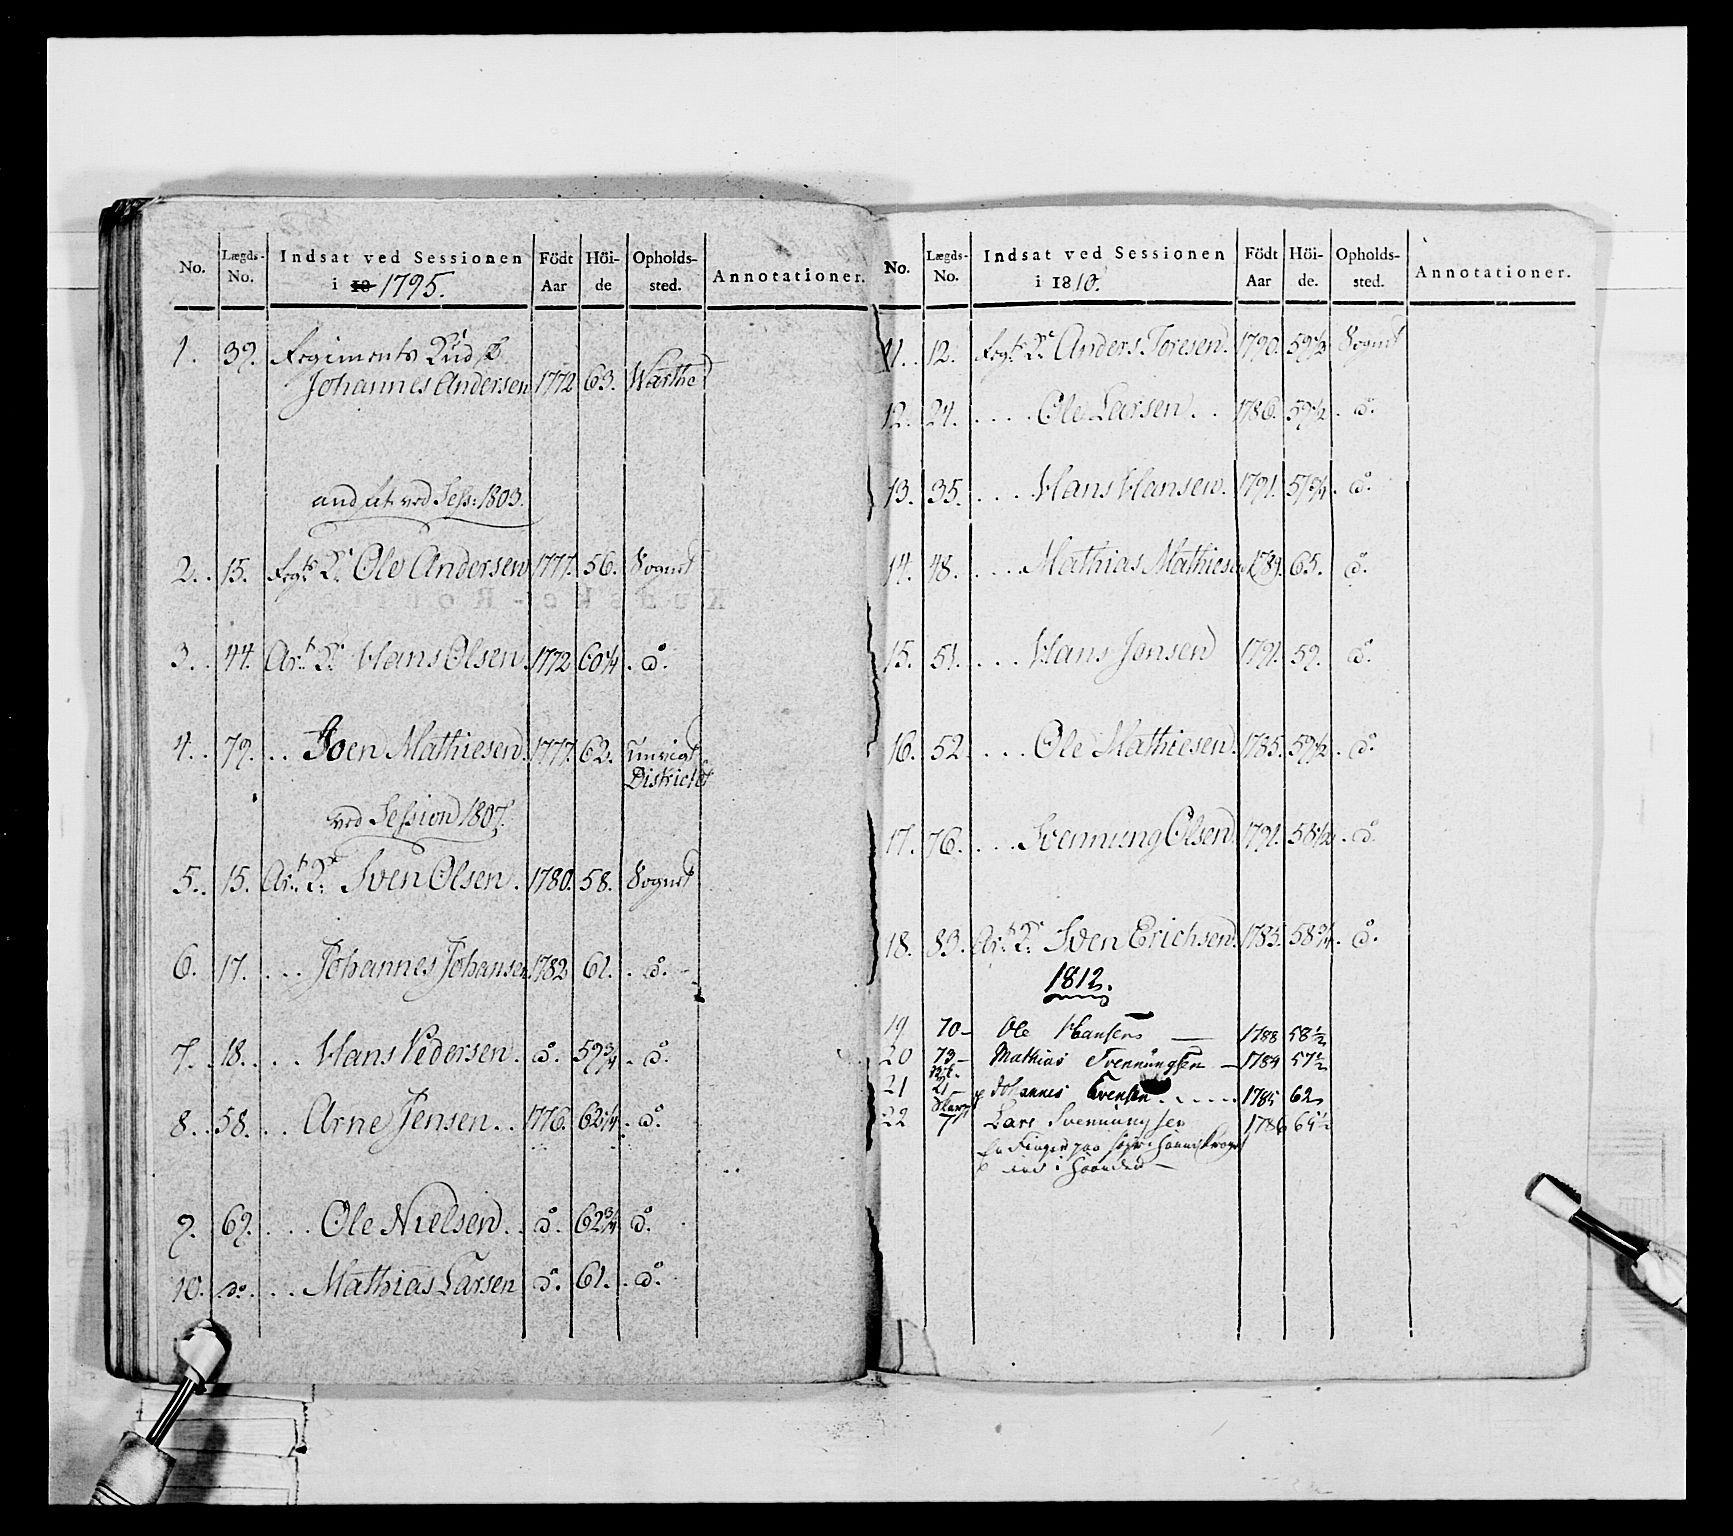 No. Lægds- No. Indsat ved Sessionen i 18 1795. Födt Aar Höi- de Opholds- sted. Annotationer.
1. 39. Regiments Kudsk
Johannes Andersen 1772 63.
andsat ved Sess: 1803.
2. 15. Regts K. Ole Andersen 1777. 56. Sognet
3. 44. Art. K. Hans Olsen 1772 60 1/4 do.
4. 79. Joen Mathiesen. 1777. 62.
District
ved Session 1807.
5. 15. Art. K. Sven Olsen. 1780. 58. Sognet
6. 17. Johannes Johansen 1782 61. do.
7. 18. Hans Pedersen. do. 59 3/4 do.
8. 58. Arne Jensen. 1776. 62 1/4 do.
9. 69. Ole Nielsen. do. 62 3/4 do.
10. do. Mathias Larsen do. 61. do.
No. Lægds- No. Indsat ved Sessionen i 1810. Födt Aar Höi- de. Opholds- sted. Annotationer.
11. 12. Regts K. Anders Toresen. 1790. 59 1/2 Sognet
12. 24. Ole Larsen. 1786. 59 1/2 do.
13. 35. Hans Hansen. 1791. 57 3/4 do.
14. 48. Mathias Mathiesen 1789. 65. do.
15. 51. Hans Jensen 1791. 59. do.
16. 52. Ole Mathiesen. 1785. 59 1/2 do.
17. 76. Svennung Olsen 1791. 58 1/2 do.
18. 83. Art. K. Sven Erichsen. 1785. 58 3/4 do.
1812.
19 70 - Ole Hansen — 1788 58 1/2
20 73 - Mathias Svennungsen - 1789 57 1/2
21 21 - Johannes Svensen 1785 62
22 7 Lars Svennungsen 1786 61 1/2
En Finger paa høire Haand kroget
ind i Haanden -